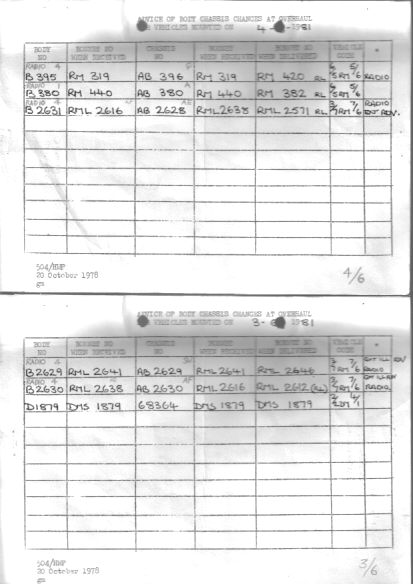 ADVICE OF BODY CHASSIS CHANGES AT OVERHAUL
VEHICLES MOUNTED ON 4- 1981
BODY NO BONNET NO WHEN RECEIVED CHASSIS NO BONNET NO WHEN RECEIVED BONNET NO WHEN DELIVERED VEHICLE CODE *
RADIO 4
B 395 RM 319 AB 396 RM 319 RM 420 RL 5RM 5/6 RADIO
RADIO 1 A
B 380 RM 440 AB 380 RM 440 RM 382 RL 5RM 5/6
RADIO 4 AE RADIO
B 2631 RML 2616 AB 2628 RML 2638 RML 2571 RL 7RM 7/6 ADV.
504/HMP
20 October 1978
gs
4/6
ADVICE OF BODY CHASSIS CHANGES AT OVERHAUL
VEHICLES MOUNTED ON 3-6 1981
BODY NO BONNET NO WHEN RECEIVED CHASSIS NO BONNET NO WHEN RECEIVED BONNET NO WHEN DELIVERED VEHICLE CODE *
RADIO 4
B2629 RML 2641 AB 2629 RML 2641 RML 2646 7RM 7/6 RADIO
RADIO 4 AF
B2630 RML 2638 AB 2630 RML 2616 RML 2612 (RL) 7RM 7/6 RADIO
D1879 DMS 1879 68364 DMS 1879 DMS 1879 2DM 4/1
504/HMP
20 October 1978
gs
3/6